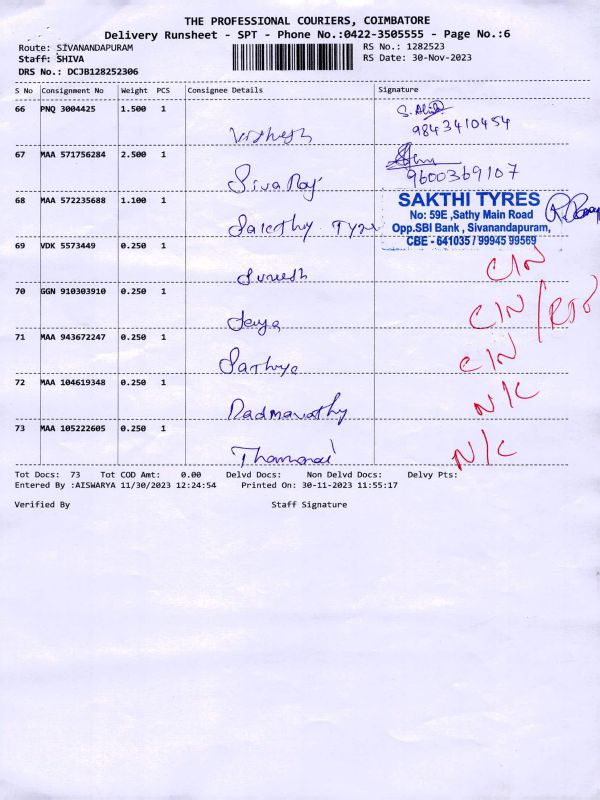 THE PROFESSIONAL COURIERS, COIMBATORE
Delivery Runsheet - SPT - Phone No.:0422-3505555 - Page No.:6
Route: SIVANANDAPURAM
RS No.: 1282523
Staff: SHIVA
RS Date: 30-Nov-2023
DRS No.: DCJB128252306
S No Consignment No Weight PCS Consignee Details Signature
66 PNQ 3004425 1.500 1
9843410454
Vishesh
67 MAA 571756284 2.500 1
9600369107
Siva Raj
68 MAA 572235688 1.100 1
SAKTHI TYRES
No: 59E ,Sathy Main Road
Opp.SBI Bank , Sivanandapuram,
CBE - 641035 / 99945 99569
Sakthy Tyre
69 VDK 5573449 0.250 1
Suresh
C/N
70 GGN 910303910 0.250 1
Jaya
C/N /
71 MAA 943672247 0.250 1
Sathya
C/N
72 MAA 104619348 0.250 1
Padmavathy
N/C
73 MAA 105222605 0.250 1
N/C
Tot Docs: 73 Tot COD Amt: 0.00 Delvd Docs: Non Delvd Docs: Delvy Pts:
Entered By :AISWARYA 11/30/2023 12:24:54 Printed On: 30-11-2023 11:55:17
Verified By Staff Signature